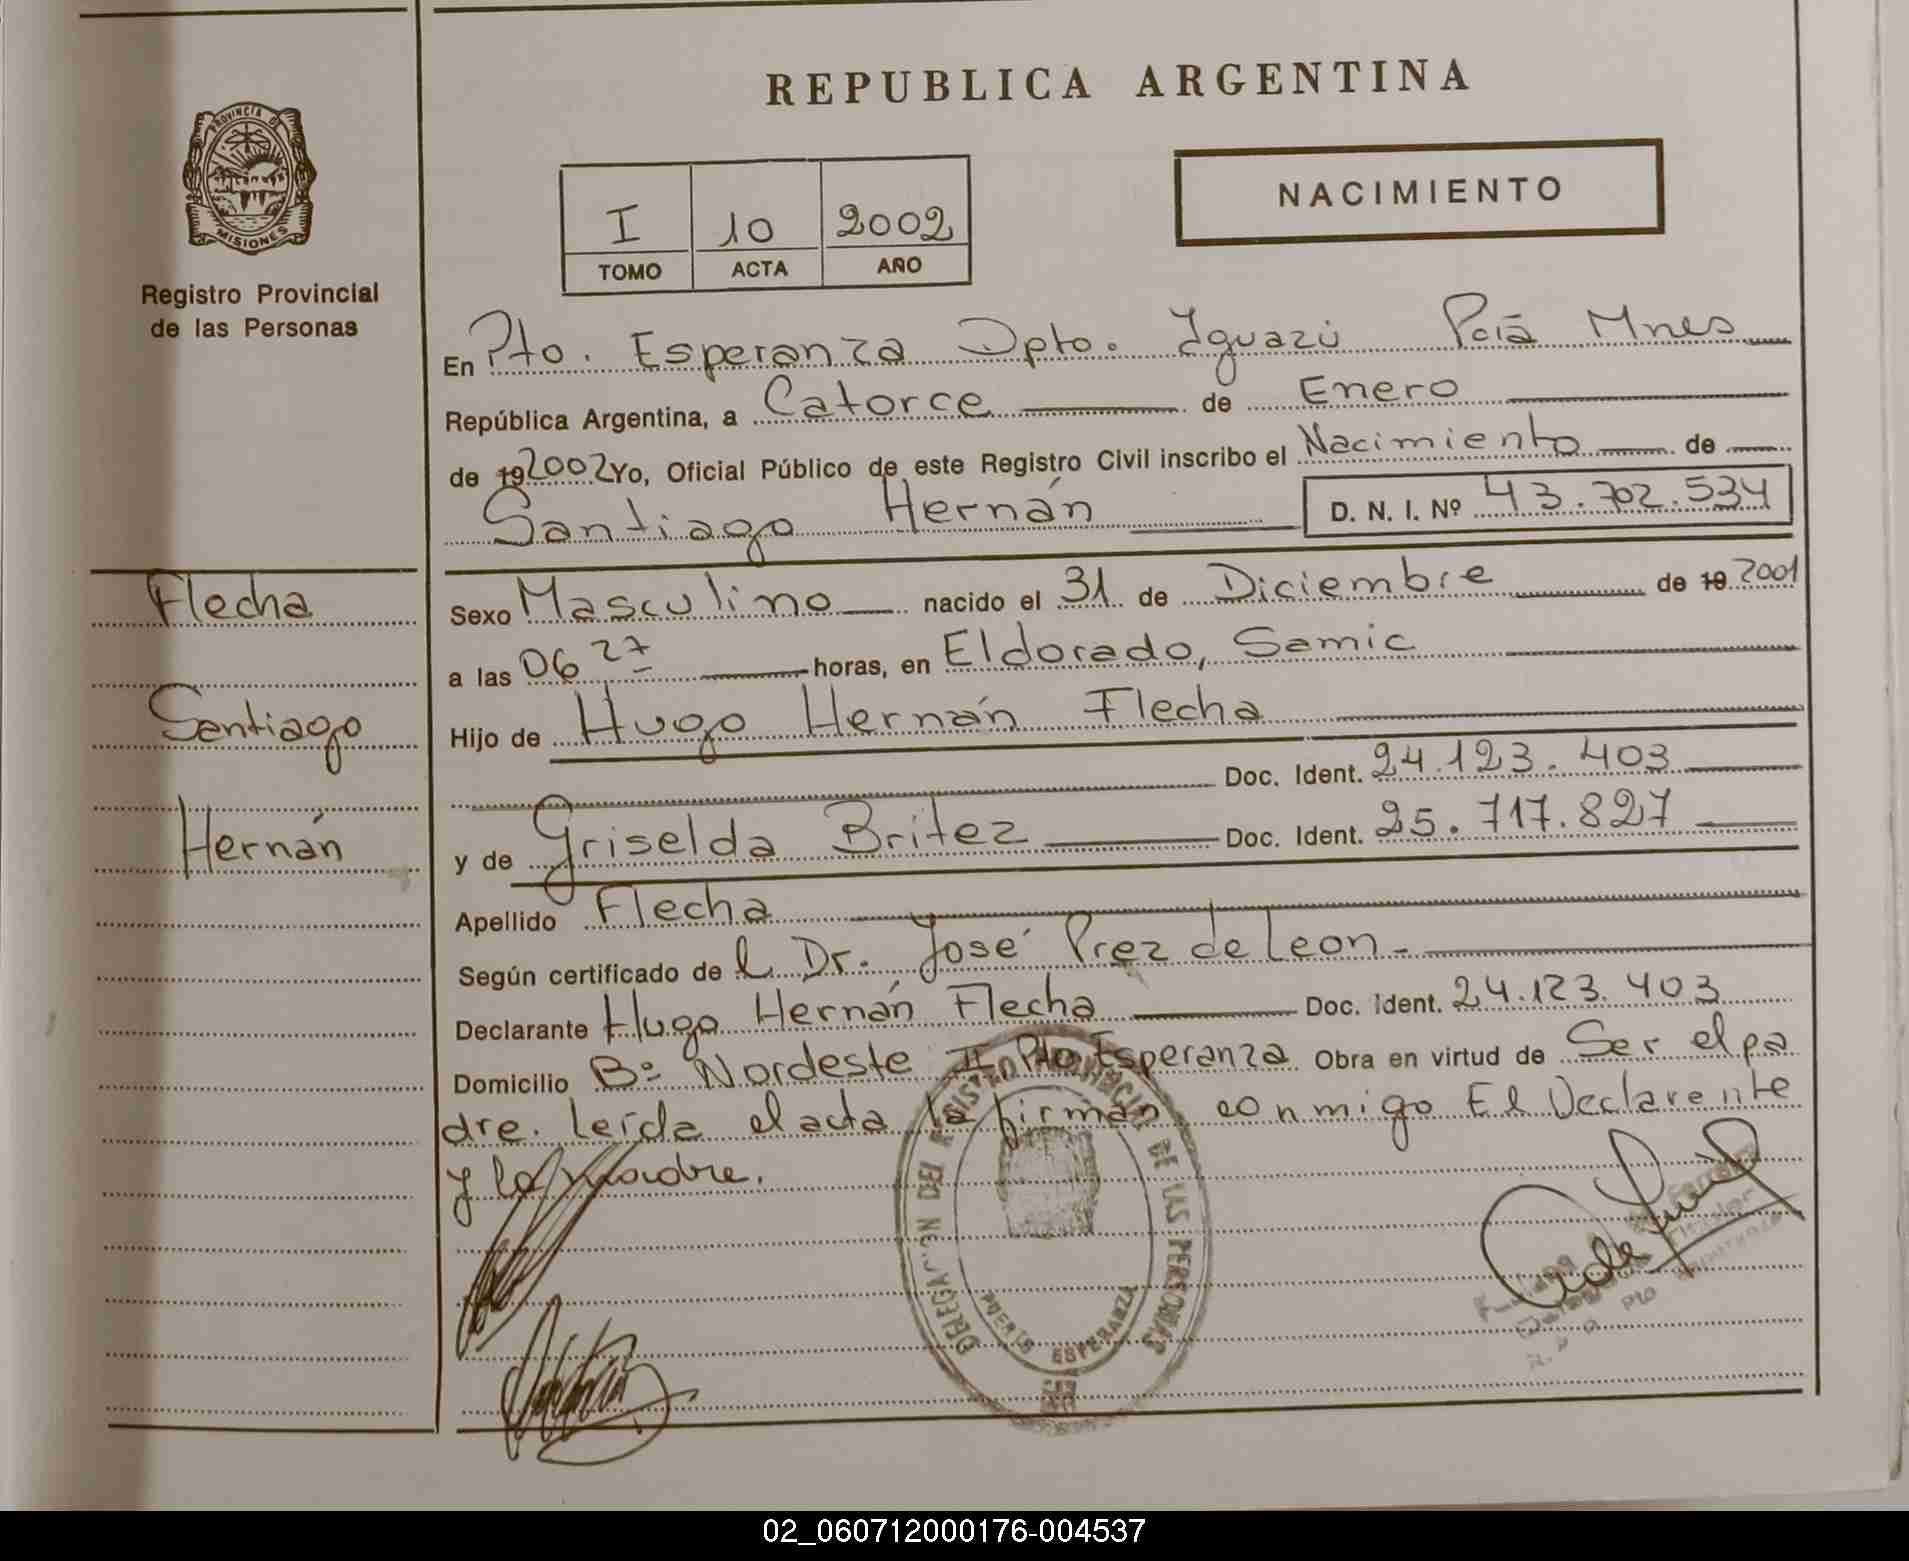 REPUBLICA ARGENTINA
PROVINCIA DE
MISIONES
Registro Provincial
de las Personas
NACIMIENTO
I 10 2002
TOMO ACTA AÑO
En Pto. Esperanza Dpto. Iguazú Pciã Mnes
República Argentina, a Catorce de Enero
de 19 2002 Yo, Oficial Público de este Registro Civil inscribo el Nacimiento de
Santiago Hernán D. N. I. Nº 43.702.534
Flecha
Santiago
Hernán
Sexo Masculino nacido el 31 de Diciembre de 19 2001
a las 06 27 horas, en Eldorado, Samic
Hijo de Hugo Hernán Flecha
Doc. Ident. 24.123.403
y de Griselda Britez Doc. Ident. 25.717.827
Apellido Flecha
Según certificado de l Dr. José Prez de Leon.-
Declarante Hugo Hernán Flecha Doc. Ident. 24.123.403
Domicilio Bº Nordeste II Pto Esperanza Obra en virtud de Ser el pa
dre. leída el acta la firman conmigo El Declarente
y la madre.
DELEGACION DEL REGISTRO PROVINCIAL DE LAS PERSONAS
PUERTO ESPERANZA
02_060712000176-004537